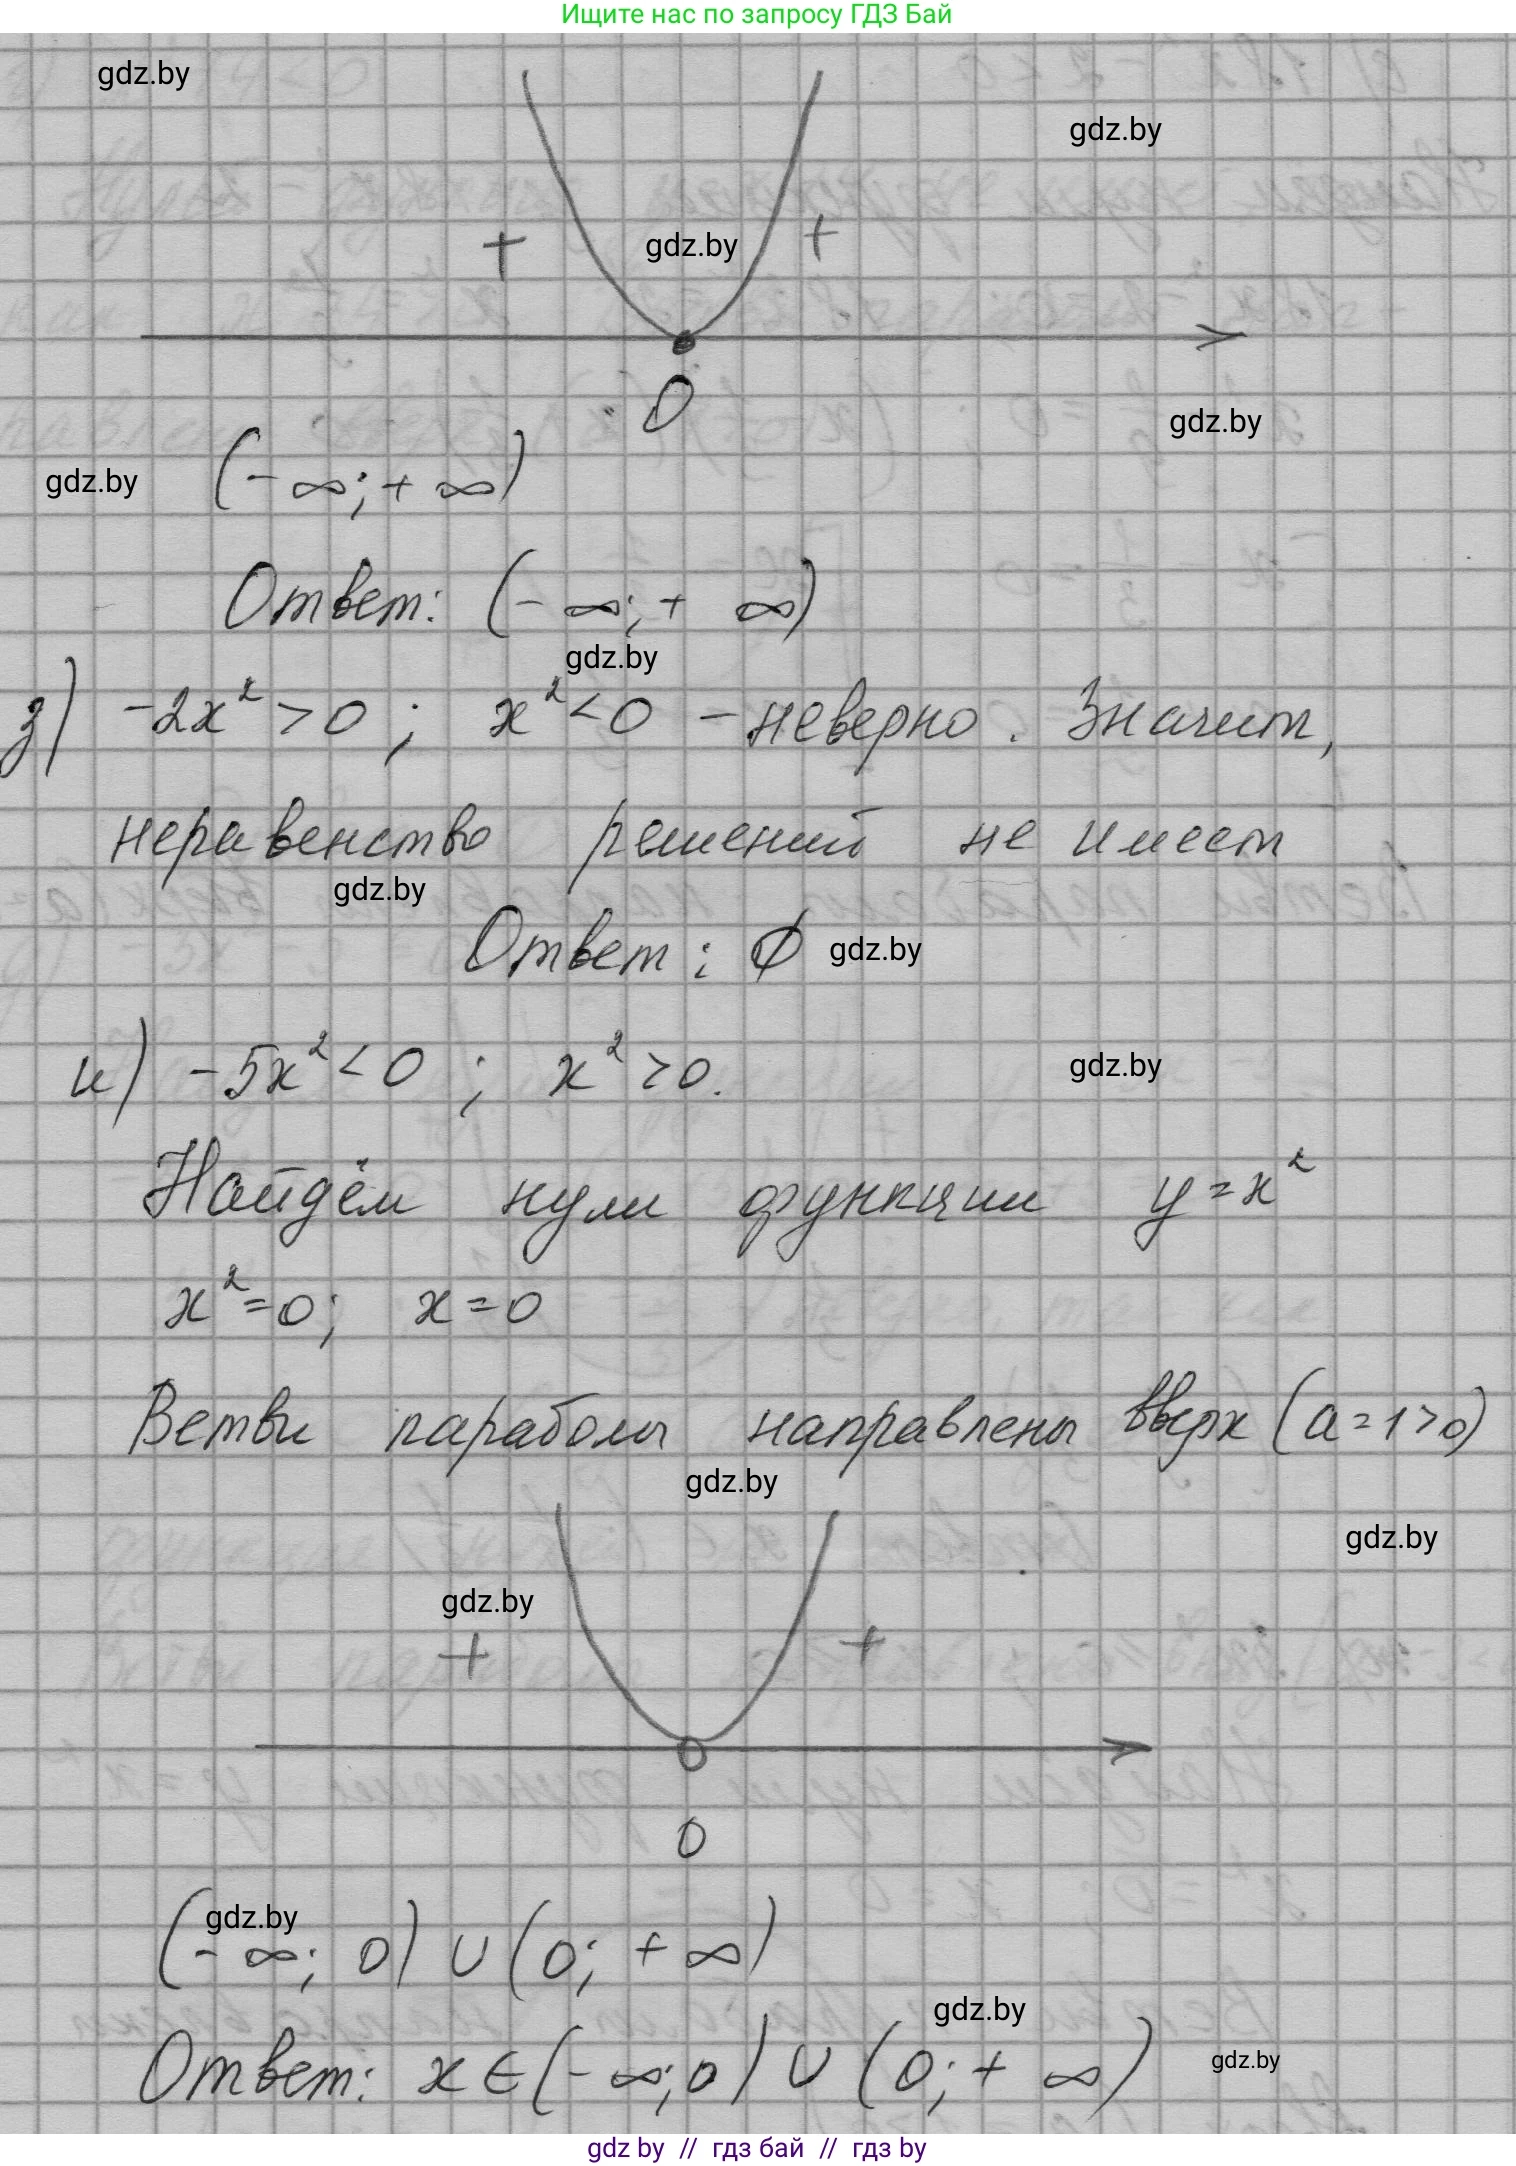 Ищите нас по запросу ГДЗ Бай
gdz.by
gdz.by
+ gdz.by +
0
gdz.by
gdz.by (-∞; +∞)
Ответ: (-∞; + ∞)
gdz.by
з) -2x² > 0 ; x² < 0 - неверно. Значит,
неравенство решений не имеет
gdz.by
Ответ: ∅ gdz.by
и) -5x² < 0 ; x² > 0. gdz.by
Найдём нули функции y = x²
x² = 0; x = 0
Ветви параболы направлены вверх (a = 1 > 0)
gdz.by
gdz.by
gdz.by
+ +
0
gdz.by
(-∞; 0) ∪ (0; +∞)
gdz.by
Ответ: x ∈ (-∞; 0) ∪ (0; + ∞) gdz.by
gdz by // гдз бай // гдз by